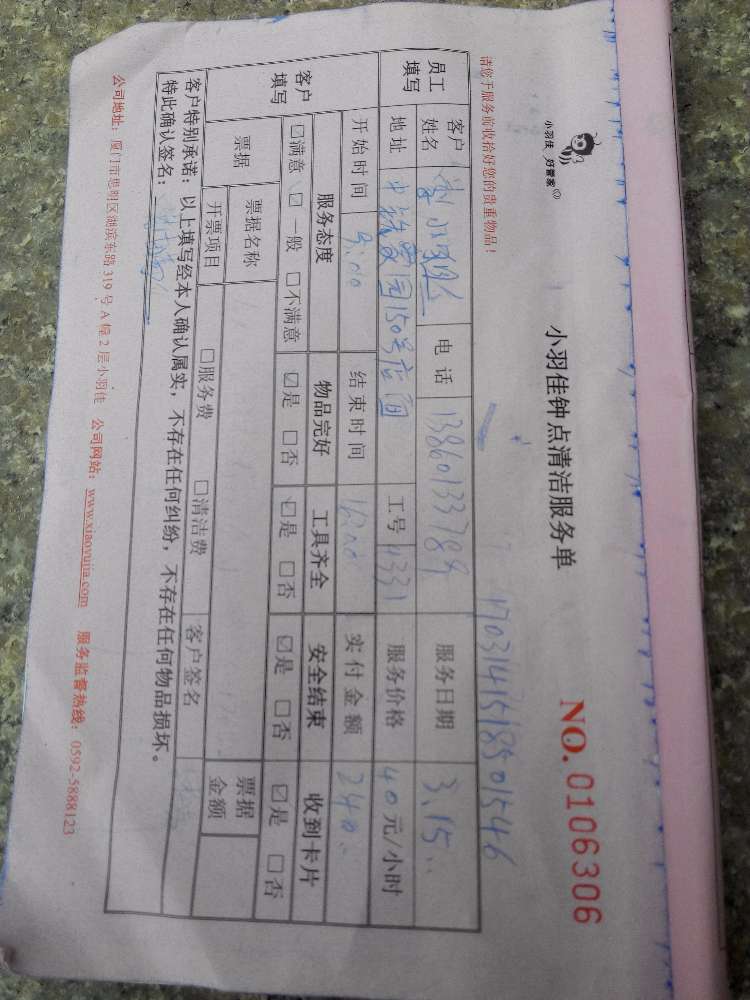 小羽佳 好管家
小羽佳钟点清洁服务单
NO.0106306
请您于服务前收拾好您的贵重物品！
1703141518501546
员工填写 客户姓名 电话 服务日期 3.15
地址 150号店面 工号 1331 服务价格 40元/小时
客户填写 开始时间 9:00 结束时间 实付金额 240
服务态度 物品完好 工具齐全 安全结束 收到卡片
☑满意 ☑一般 □不满意 ☑是 □否 ☑是 □否 ☑是 □否 ☑是 □否
票据 票据名称 票据金额
开票项目 □服务费 □清洁费 客户签名
客户特别承诺：以上填写经本人确认属实，不存在任何纠纷，不存在任何物品损坏。
特此确认签名：
公司地址：厦门市思明区湖滨东路319号A幢2层小羽佳 公司网站：www.xiaoyujia.com 服务监督热线：0592-5888123